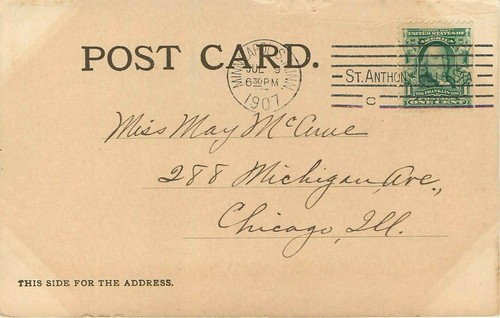 POST CARD.
JUL 9
6 30 PM
1907
ST. ANTHONY FALLS STA.
C
UNITED STATES OF
AMERICA
FRANKLIN
ONE CENT
Miss May McCrue
288 Michigan, Ave.,
Chicago, Ill.
THIS SIDE FOR THE ADDRESS.